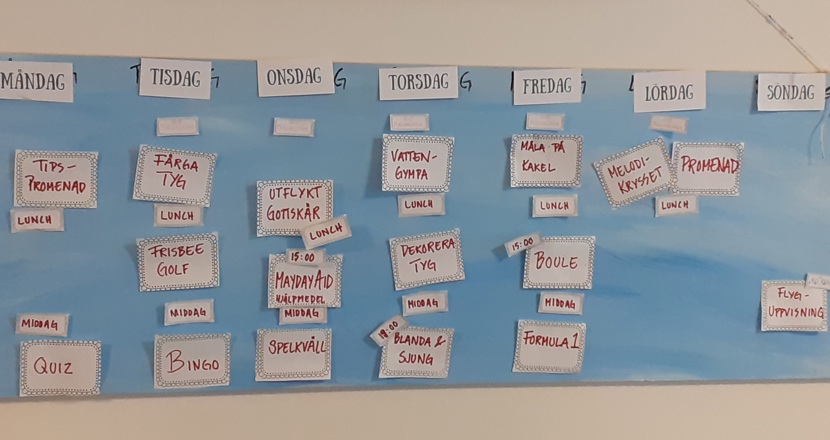 MÅNDAG
TIPS-
PROMENAD
LUNCH
MIDDAG
QUIZ
TISDAG
FÄRGA
TYG
LUNCH
FRISBEE
GOLF
MIDDAG
BINGO
ONSDAG
UTFLYKT
GOTTSKÄR
LUNCH
15:00
MAYDAY AID
HJÄLPMEDEL
MIDDAG
SPELKVÄLL
TORSDAG
VATTEN-
GYMPA
LUNCH
DEKORERA
TYG
MIDDAG
19:00
BLANDA &
SJUNG
FREDAG
MÅLA PÅ
KAKEL
LUNCH
15:00
BOULE
MIDDAG
FORMULA 1
LÖRDAG
MELODI-
KRYSSET
PROMENAD
LUNCH
SÖNDAG
FLYG-
UPPVISNING